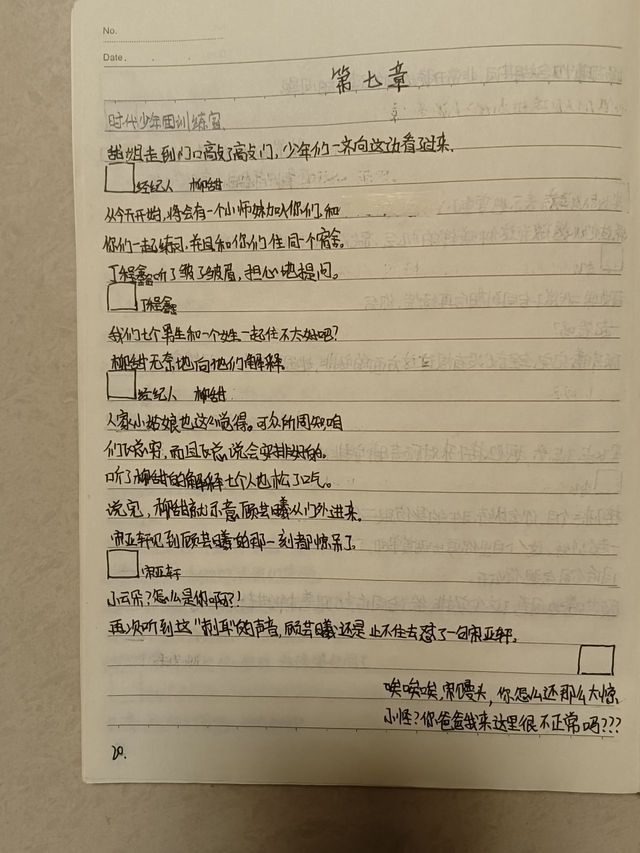 No.
Date . .
第七章
时代少年团训练室
甜姐走到门口敲了敲门，少年们一齐向这边看了过来。
经纪人 柳甜
从今天开始，将会有一个小师妹加入你们，和
你们一起练习，并且和你们住同一个宿舍。
丁程鑫听了皱了皱眉，担心地提问。
丁程鑫
我们七个男生和一个女生一起住不大好吧？
柳甜无奈地向他们解释
经纪人 柳甜
人家小姑娘也这么觉得。可众所周知咱
们飞总穷，而且飞总说会安排好的。
听了柳甜的解释七个人也松了口气。
说完，柳甜就示意顾芸曦从门外进来。
宋亚轩见到顾芸曦的那一刻都惊呆了。
宋亚轩
小云朵？怎么是你啊？！
再次听到这“刺耳”的声音，顾芸曦还是止不住去怼了一句宋亚轩。
唉唉唉，宋馒头，你怎么还那么大惊
小怪？你爸爸我来这里很不正常吗？？？
20.